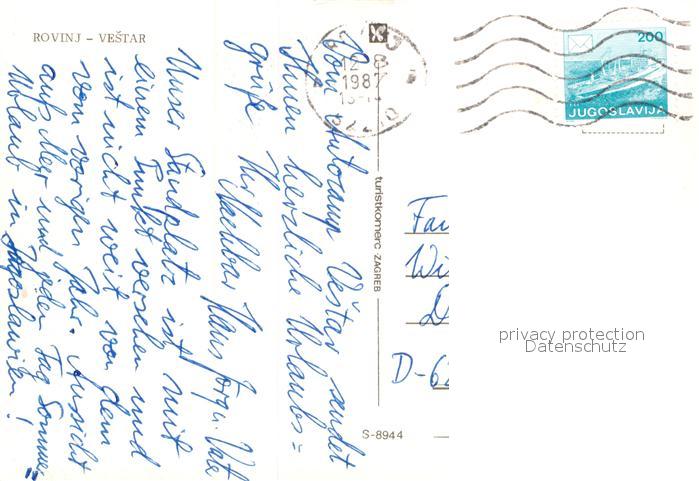 ROVINJ – VEŠTAR
Vom Autocamp Veštar sendet
Ihnen herzliche Urlaubs=
grüße Ihr Nachbar Hans
Unser Standplatz ist mit
einem Punkt versehen und
ist nicht weit von dem
vom vorigen Jahr. Aussicht
aufs Meer und jeden Tag Sonne=
Urlaub in Jugoslawien!
turistkomerc-ZAGREB
S-8944
12 8
1987
200
JUGOSLAVIJA
Wi
D
D-62
privacy protection
Datenschutz